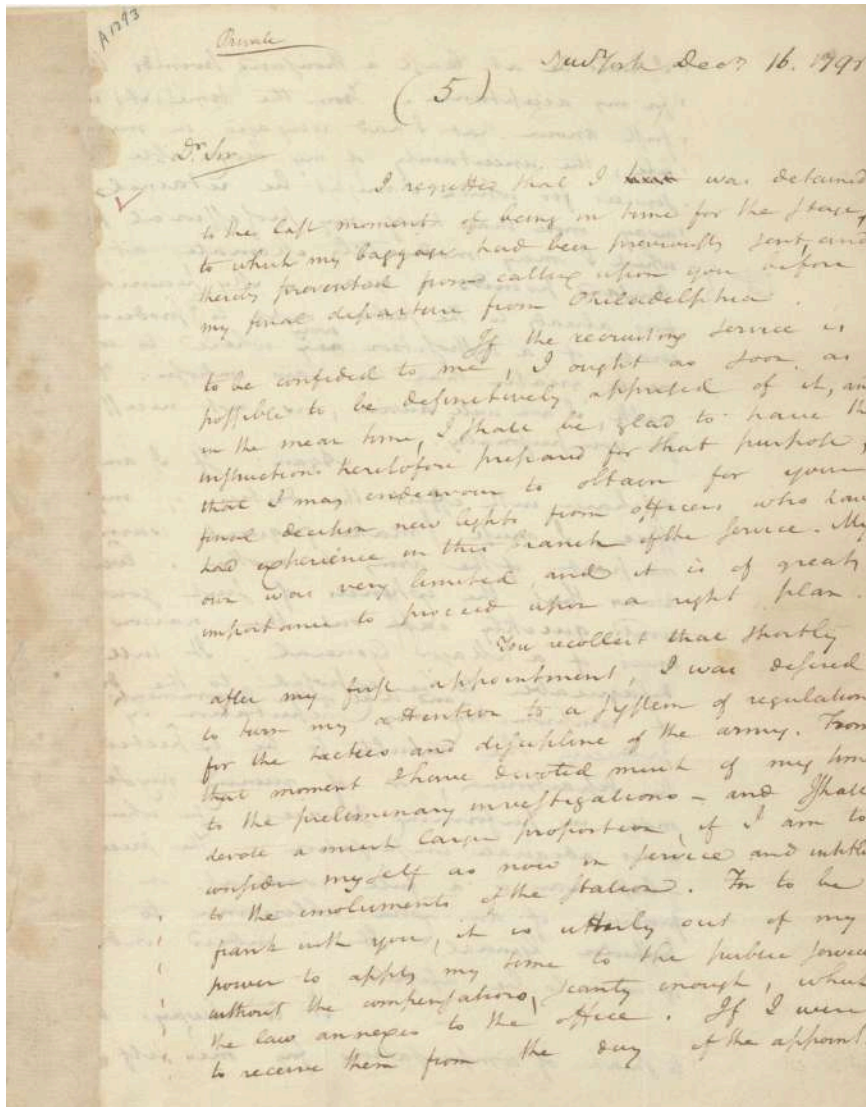 A1293
Private
New York Decr 16. 1798
(5)
Dr Sir
I regretted that I was detained
to the last moment of being in time for the stage,
to which my baggage had been previously sent, and
thereby prevented from calling upon you before
my final departure from Philadelphia.
If the recruiting service is
to be confided to me, I ought as soon as
possible to be definitively apprised of it, and
in the mean time, I shall be glad to have the
instructions heretofore prepared for that purpose,
that I may endeavour to obtain for your
final decision new lights from officers who have
had experience in this branch of the service. My
own was very limited and it is of great
importance to proceed upon a right plan.
You recollect that shortly
after my first appointment, I was desired
to turn my attention to a system of regulation
for the tactics and discipline of the army. From
that moment I have devoted much of my time
to the preliminary investigations – and I shall
devote a much larger proportion, if I am to
consider myself as now in service and intitled
to the emoluments of the station. For to be
frank with you, it is utterly out of my
power to apply my time to the public service
without the compensations, scanty enough, which
the law annexes to the office. If I were
to receive them from the day of the appoint